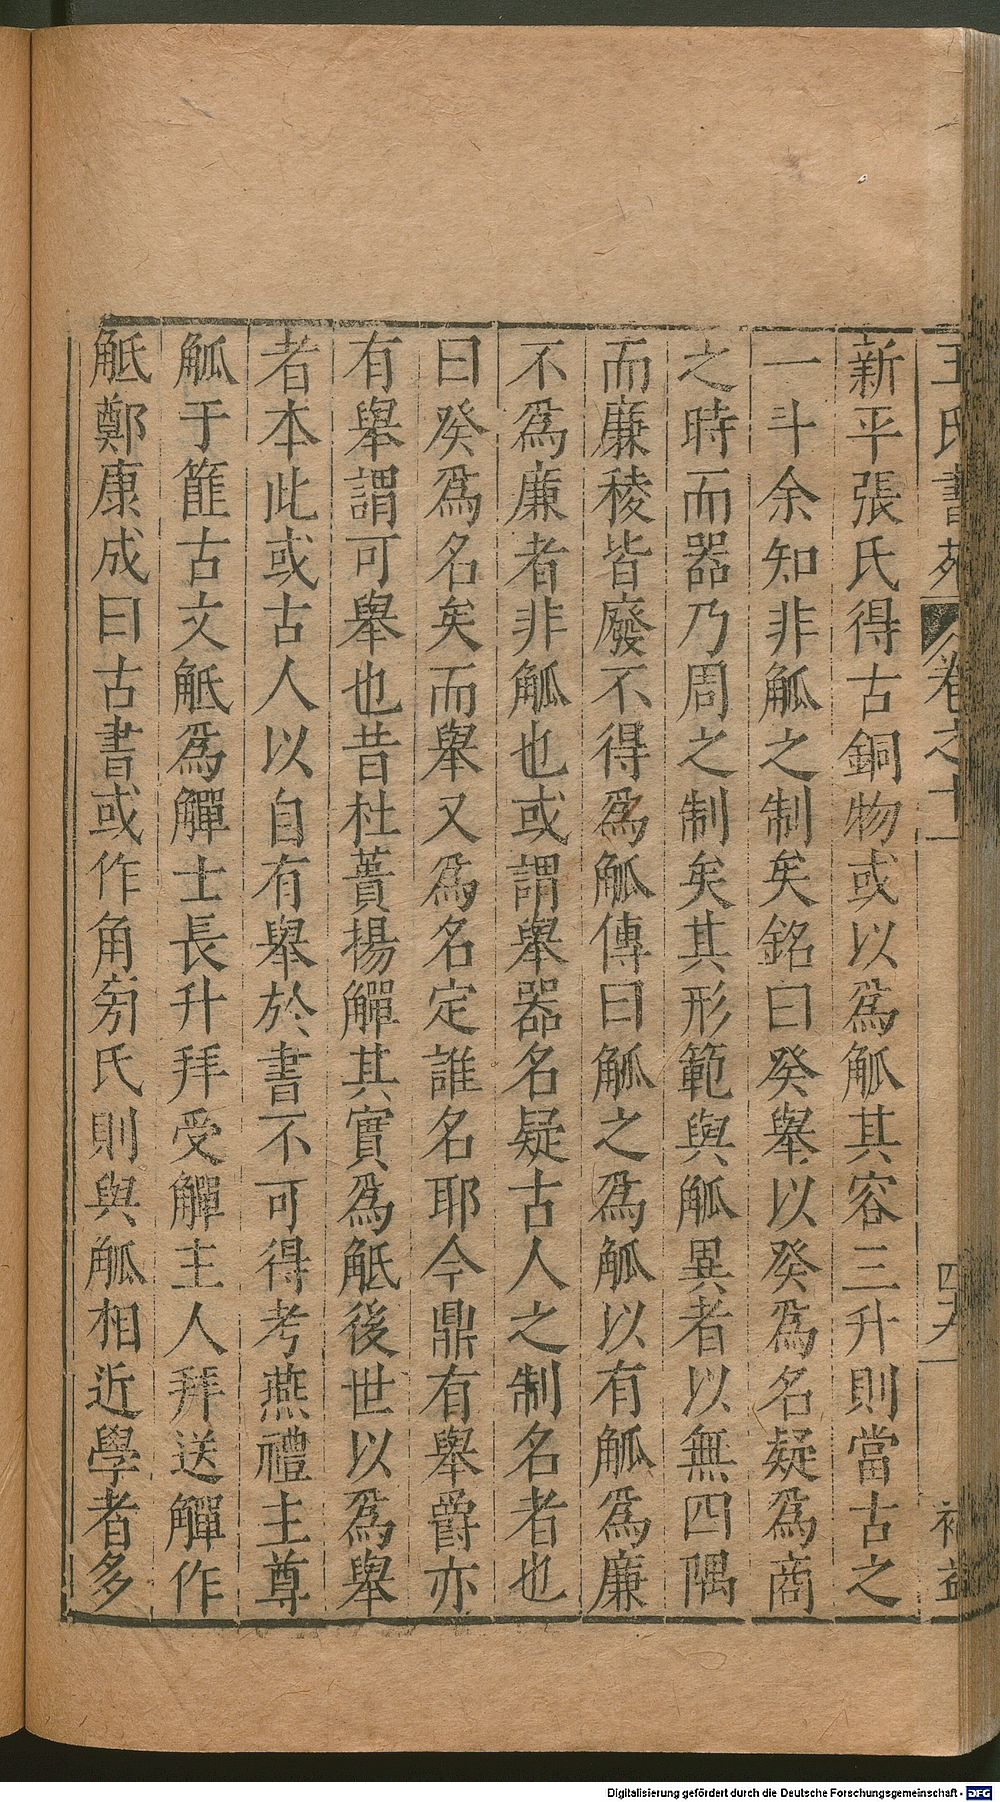 王氏書苑 卷之十一 四九 補益
新平張氏得古銅物或以爲觚其容三升則當古之
一斗余知非觚之制矣銘曰癸舉以癸爲名疑爲商
之時而器乃周之制矣其形範與觚異者以無四隅
而廉稜皆廢不得爲觚傳曰觚之爲觚以有觚爲廉
不爲廉者非觚也或謂舉器名疑古人之制名者也
曰癸爲名矣而舉又爲名定誰名耶今鼎有舉爵亦
有舉謂可舉也昔杜蕢揚觶其實爲觗後世以爲舉
者本此或古人以自有舉於書不可得考燕禮主尊
觚于篚古文觗爲觶士長升拜受觶主人拜送觶作
觗鄭康成曰古書或作角旁氏則與觚相近學者多
Digitalisierung gefördert durch die Deutsche Forschungsgemeinschaft - DFG